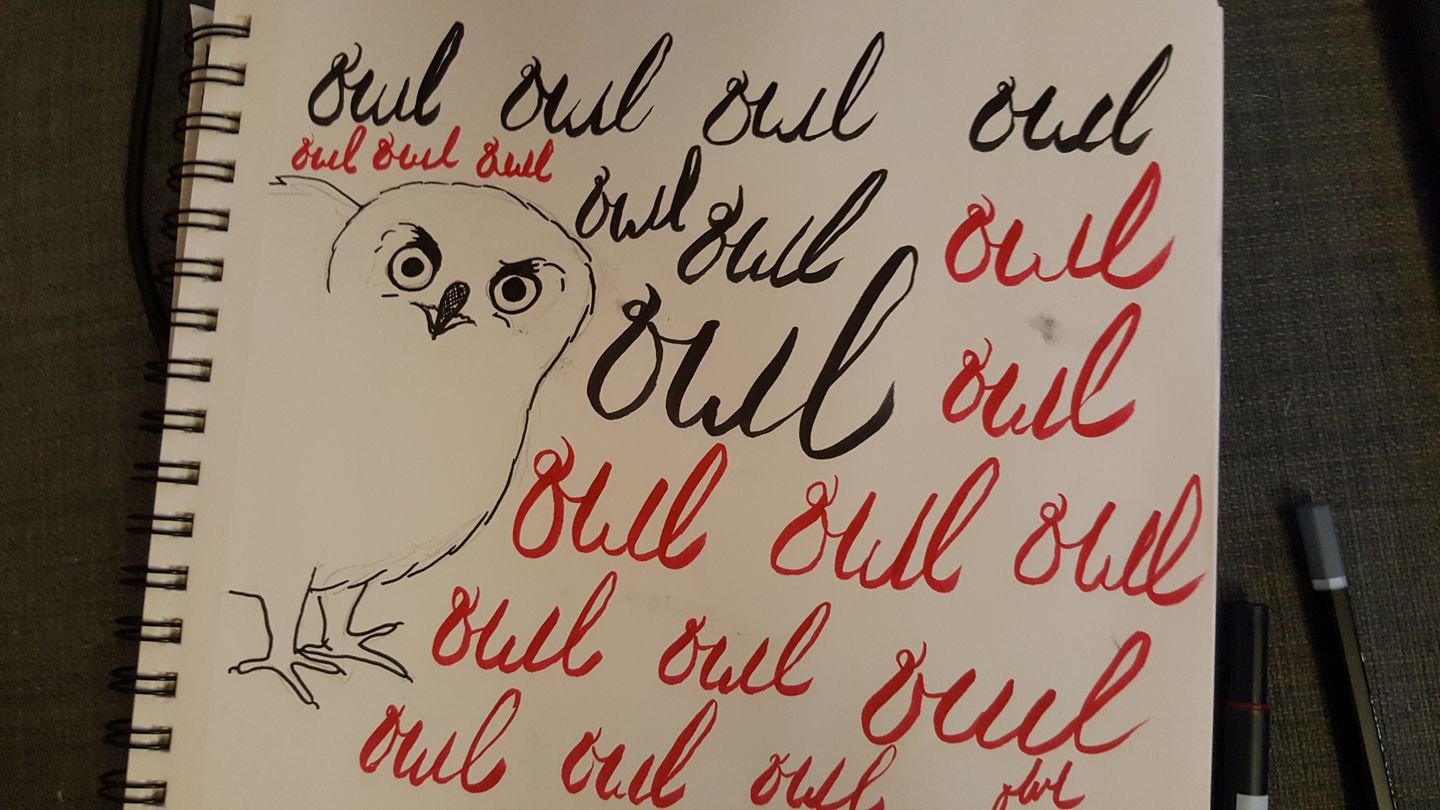 owl owl owl owl
owl owl owl
owl owl owl
owl
owl
owl owl owl
owl owl owl
owl owl owl